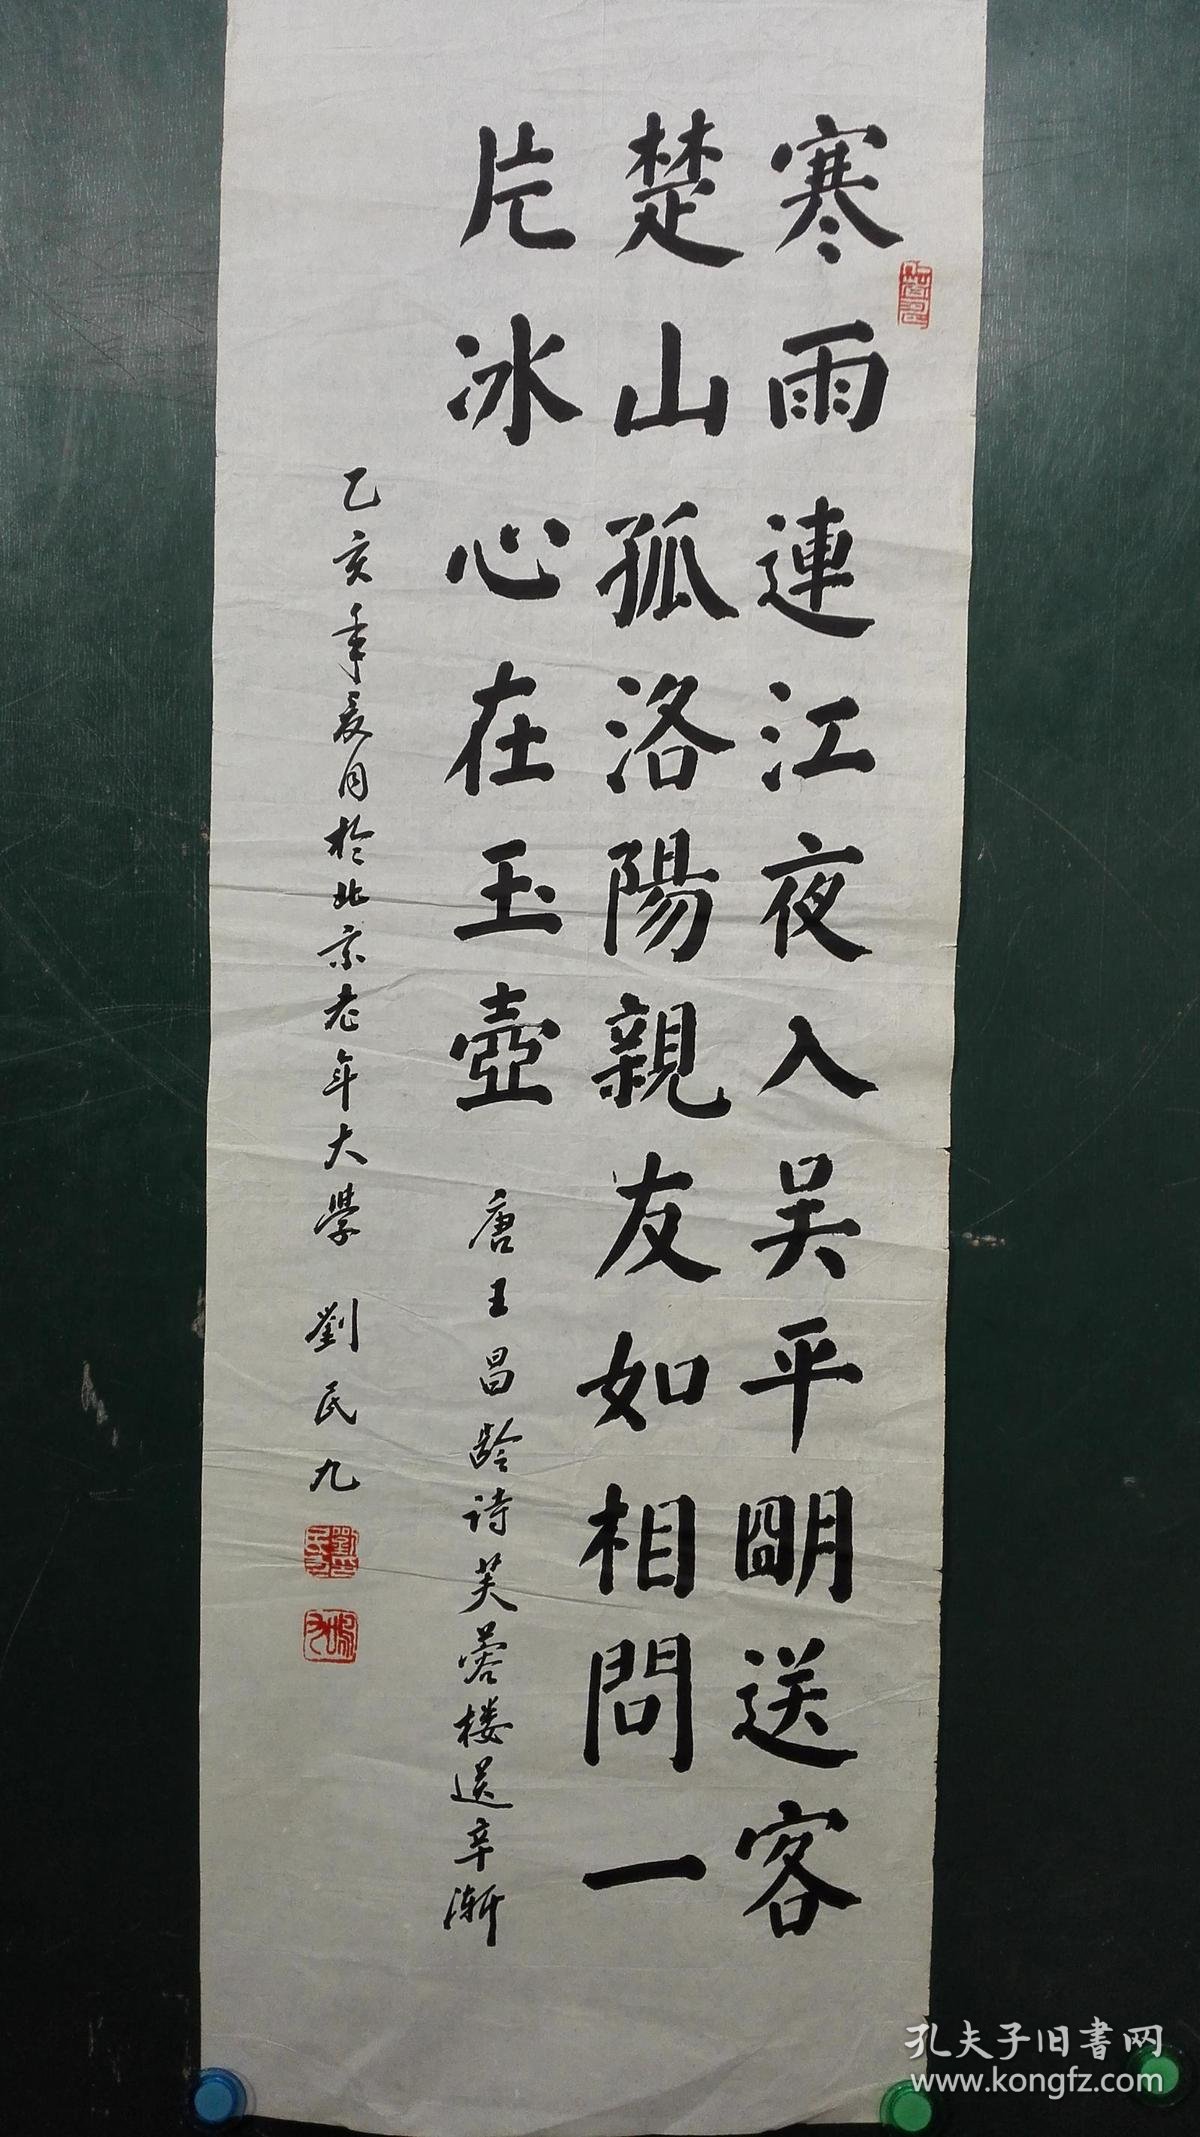 寒雨連江夜入吴平明送客
楚山孤洛陽親友如相問一
片冰心在玉壺
唐王昌龄诗芙蓉楼送辛渐
乙亥年夏月於北京老年大學 劉民九
孔夫子旧書网
www.kongfz.com